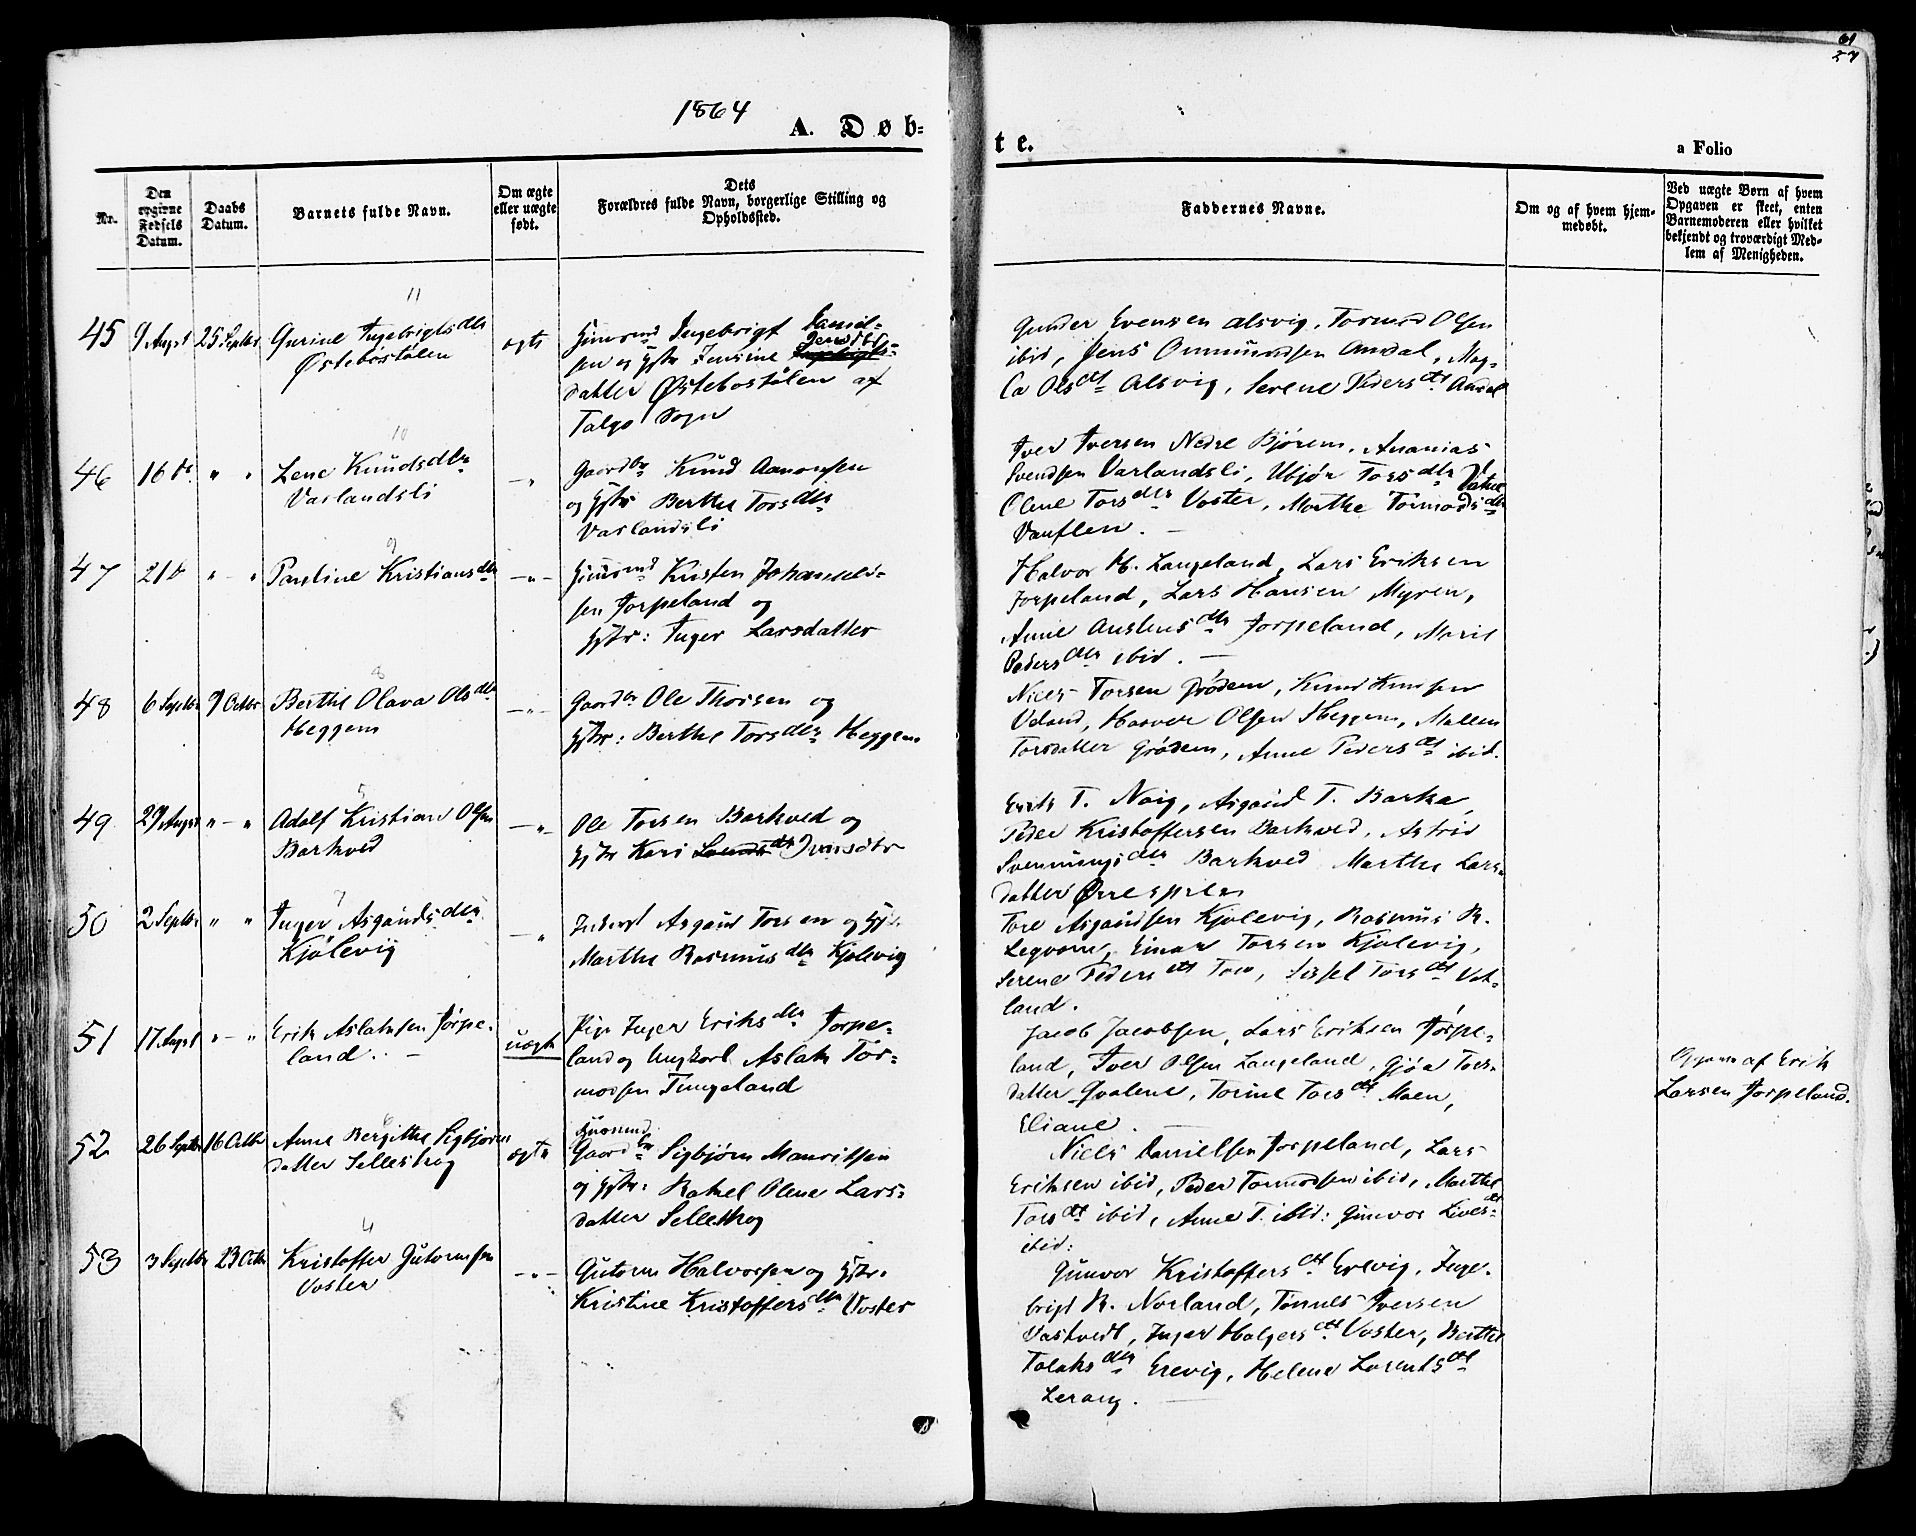 61
57
1864
A. Døb=
te.
a Folio
Nr.
Den
opgivne
Fødsels
Datum.
Daabs
Datum.
Barnets fulde Navn.
Om ægte
eller uægte
født.
Dets
Forældres fulde Navn, borgerlige Stilling og
Opholdssted.
Faddernes Navne.
Om og af hvem hjem-
medøbt.
Ved uægte Børn af hvem
Opgaven er skeet, enten
Barnemoderen eller hvilket
bekjendt og troværdigt Med-
lem af Menigheden.
11
45 9 Augst 25 Septbr Gurine Ingebrigtsdtr
Østebøstølen
ægte
Huusmd Ingebrigt Daniel-
sen og Hstr Jensine
datter Østebøstølen af
Talgø Sogn
Gunder Evensen Alsvig, Tormod Olsen
ibid, Jens Ommundsen Aadal, Mag-
Ca Olsdtr Alsvig, Serene Pedersdtr Aadal
10
46 16 d. " " Lene Knudsdtr
Varlandsli
- " -
Gaardbr Knud Aanonsen
og Hstr Berthe Torsdtr
Varlandsli
Iver Iversen Nedre Bjørem, Ananias
Svendsen Varlandsli, Torsdtr
Olene Torsdtr Voster, Marthe Tormodsdtr
9
47 21 d " - " Pauline Kristiansdtr
- " -
Huusmd Kristen Johannes-
sen Jørpeland og
Hstr: Inger Larsdatter
Halvor H. Langeland, Lars Eriksen
Jørpeland, Lars Hansen Myren,
Anne Austensdtr Jørpeland, Marie
Pedersdtr ibid. -
8
48 6 Septbr 9 Octbr Berthe Olava Olsdtr
Heggem
- " -
Gaardbr Ole Thorsen og
Hstr: Berthe Torsdtr Heggem
Niels Torsen Grødem, Knud Knudsen
Veland, Halvor Olsen Heggem, Malene
Torsdatter Grødem, Anne Pedersdtr ibid.
5
49 29 Augst " - " Adolf Kristian Olsen
Barkved
- " -
Ole Torsen Barkved og
Hstr Kari Svendsdtr Iversdtr
Erik T. Norg, Asgaud T. Barka,
Peder Kristoffersen Barkved, Astrid
Svenningsdtr Barkved Marthe Lars-
datter
7
50 2 Septbr " " Inger Asgaudsdtr
Kjølevig
- "
Inderst Asgaud Torsen og Hstr.
Marthe Rasmusdtr Kjølevig
Tore Asgaudsen Kjølevig, Rasmus R.
Einar Torsen Kjølevig,
Serene Pedersdtr Tou, Sissel Torsdtr Vat-
land.
51 17 Augst " - " Erik Aslaksen Jørpe-
land. -
uægte
Pige Inger Eriksdtr Jørpe-
land og Ungkarl Aslak Tor-
mosen Tungeland
Jacob Jacobsen, Lars Eriksen Jørpe-
land, Iver Olsen Langeland, Gjøa Tors-
datter Qvalene, Torine Torsdtr Moen,
Eliane. -
Opgaven af Erik
Larsen Jørpeland.
6
52 26 Septbr 16 Octbr Anne Bergithe Sigbjørns
datter Selleskog
ægte
Huusmd
Gaardbr Sigbjørn Mauritsen
og Hstr: Rakel Olene Lars-
datter Selleskog
Niels Danielsen Jørpeland, Lars
Eriksen ibid, Peder Tormodsen ibid, Marthe
Torsdtr ibid, Anne T. ibid: Gunvor Liversdtr
ibid:
4
53 3 Septbr 23 Octbr Kristoffer Gutormsen
Voster
- " -
Gutorm Halvorsen og Hstr.
Kristine Kristoffersdtr Voster
Gunvor Kristoffersdtr Erevig, Inge-
brigt R. Norland, Tønnes Iversen
Vastvedt, Inger Holgersdtr Voster, Berthe
Tolaksdtr Erevig, Helene Larentsdtr
Lerang. -